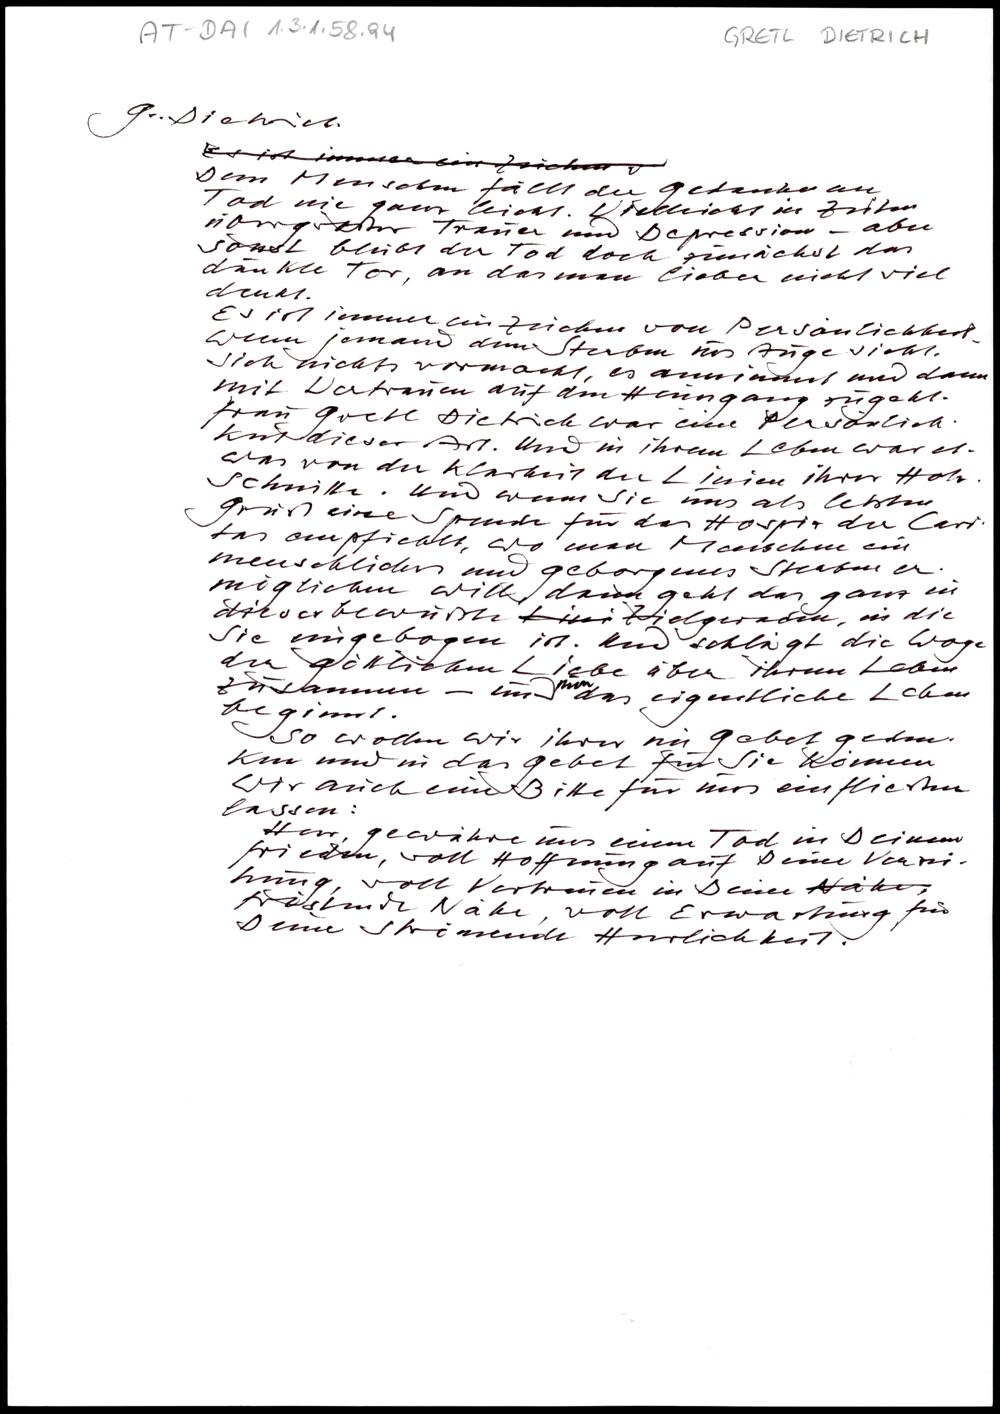 AT-DAI 1.3.1.58.94 GRETL DIETRICH
Gr. Dietrich.
Es ist immer ein Zeichen v
Dem Menschen fällt der Gedanke an
Tod nie ganz leicht. Vielleicht in Zeiten
übergroßer Trauer und Depression – aber
sonst bleibt der Tod doch zunächst das
dunkle Tor, an das man lieber nicht viel
denkt.
Es ist immer ein Zeichen von Persönlichkeit,
wenn jemand dem Sterben ins Auge sieht.
Sich nichts vormacht, es annimmt und dann
mit Vertrauen auf den Heimgang zugeht.
Frau Gretl Dietrich war eine Persönlich-
keit dieser Art. Und in ihrem Leben war et-
was von der Klarheit der Linien ihrer Holz-
schnitte. Und wenn Sie uns als letzten
Gruß eine Spende für das Hospiz der Cari-
tas empfiehlt, wo man Menschen ein
menschliches und geborgenes Sterben er-
möglichen will, dann geht das ganz in
dieser bewußten Lini Zielgeraden, in die
Sie eingebogen ist. Und schlägt die Woge
der göttlichen Liebe über ihrem Leben
zusammen – und nun das eigentliche Leben
beginnt.
So wollen wir ihrer im Gebet geden-
ken und in das Gebet für Sie können
wir auch eine Bitte für uns einfließen
lassen:
Herr, gewähre uns einen Tod in Deinem
Frieden, voll Hoffnung auf Deine Verzei-
hung, voll Vertrauen in Deine Nähe,
tröstende Nähe, voll Erwartung für
Deine strömende Herrlichkeit.